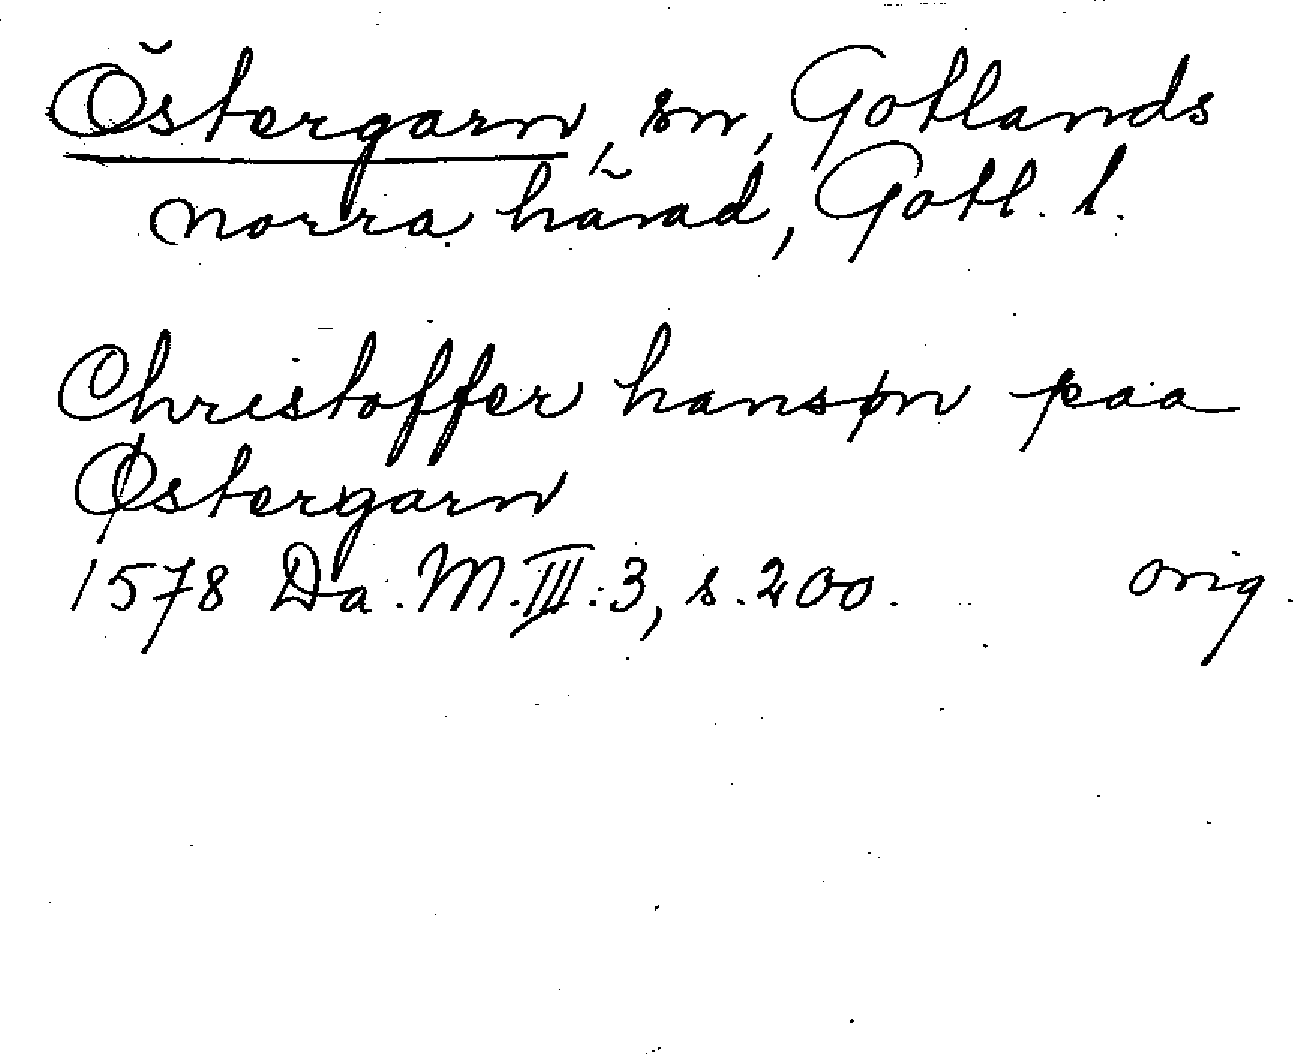 Östergarn, sn, Gotlands
norra härad, Gotl. l.
Christoffer hansøn paa
Østergarn
1578 Da. M. III: 3, s. 200. orig.